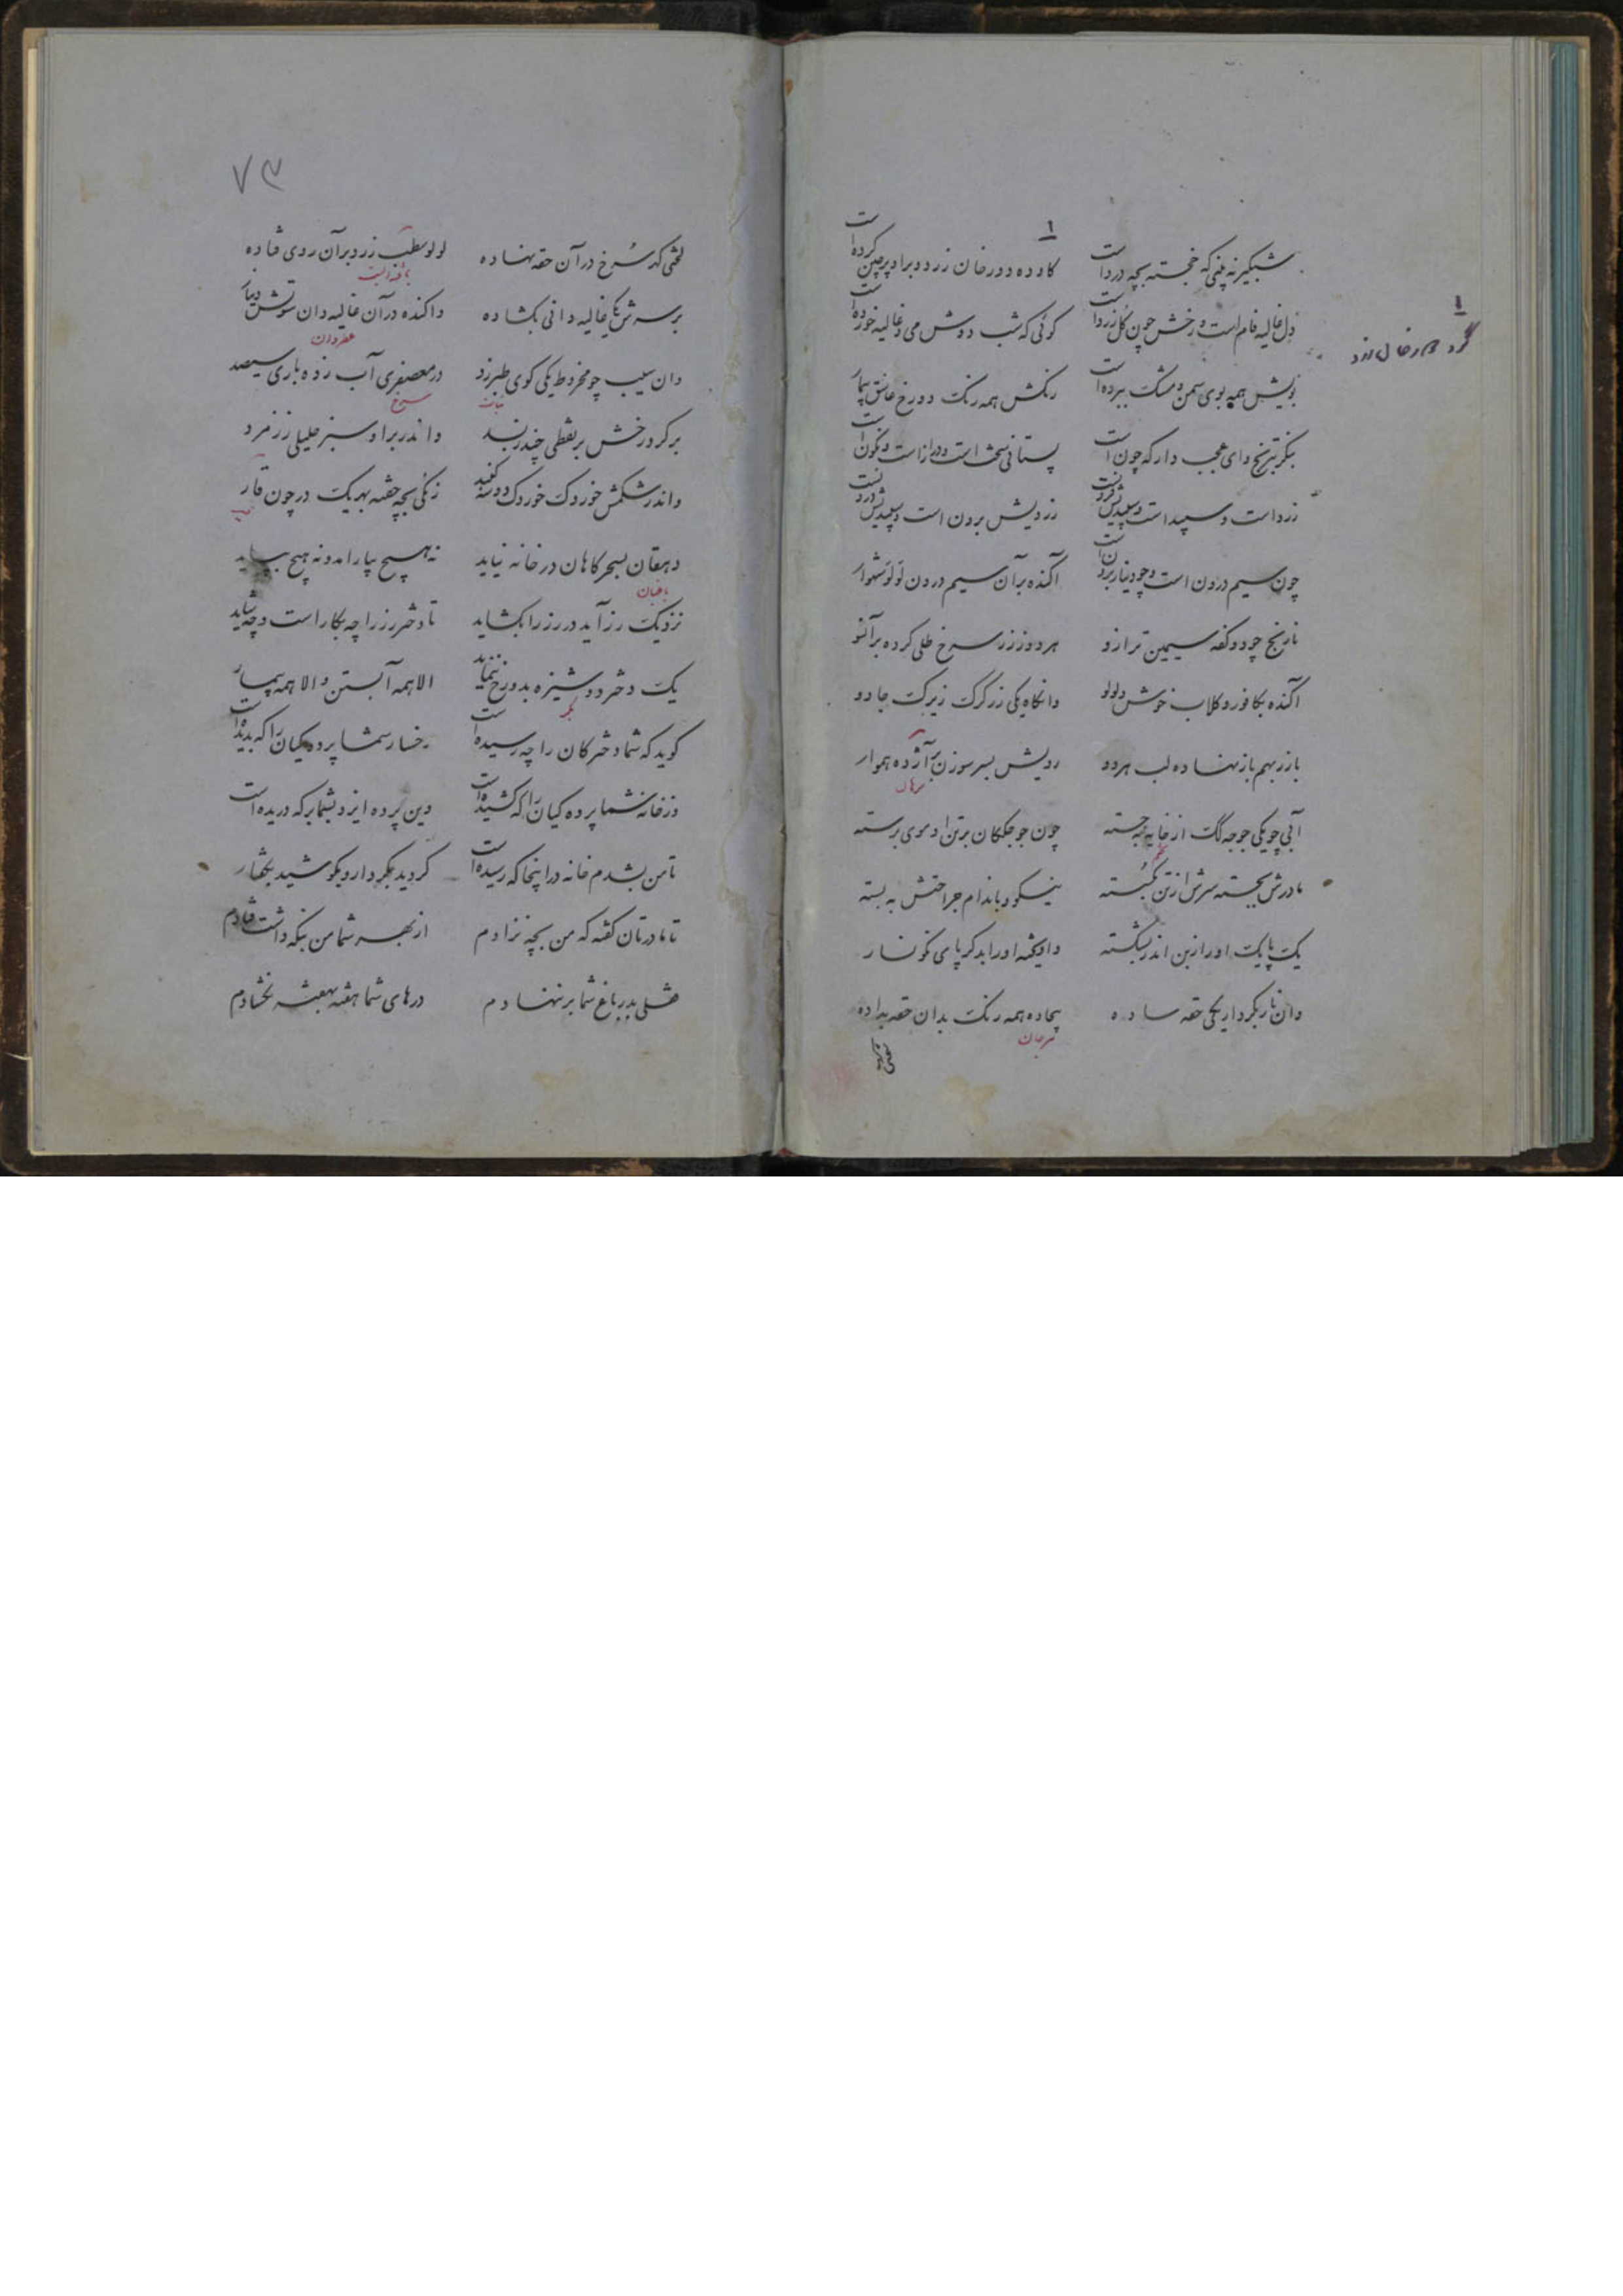 شبکیر نه بینی که خجسته بچه درد است کاو ده دو رخان زرد و برا و پرچین کرده است
دل غالیه فام است و رخش چون گل زرد است کوئی که شب دوش می و غالیه خورده است
بویش همه بوی سمن و مشک ببرده است رنکش همه رنک دو رخ عاشق بیمار
بنکر بترنج و ای عجب دار که چون است پستانی سخت است و دراز است و نکون است
زرد است و سپید است و سپیدیش فزونست زردیش برون است و سپیدیش درونست
چون سیم درون است و چو دینار برون است آکنده بر آن سیم درون لولو شهوار
نارنج چو دو کفه سیمین ترازو هر دو ز زر سرخ طلی کرده بر آنسو
آکنده بکافور و کلاب خوش و لولو وانکاه یکی زرکرک زیرک جادو
با زر بهم باز نهاده لب هر دو رویش بسر سوزن بر آژده هموار
آبی چو یکی جوجه کک از خایه بجسته چون جوجککان بر تن او موی برسته
مادرش بجسته سرش از تن بکسسته نیکو و باندام جراحتش به بسته
یک پایک او را ز بن اندر بشکسته و آویخته او را بدکر پای نکونسار
وان نار بکردار یکی حقه ساده بیجاده همه رنک بدان حقه بداده
مرجان
لختی
۷۳
لختی کهر سرخ در آن حقه نهاده لولو سطبر زرد بر آن روی فتاده
بر سرش یکی غالیه دانی بکشاده واکنده در آن غالیه دان سونش دینار
عطردان
وان سیب چو مخروط یکی کوی طبرزد در معصفری آب زده باری سیصد
سرخ
بر کرد رخش بر نقطی چند ز بسد واندر بر او سبز جلیلی ز زمرد
واندر شکمش خوردک خوردک دو سه کنبد زنکی بچه خفته بهر یک در چون قار
دهقان بسحرکاهان در خانه نیاید نه هیچ بیارامد و نه هیچ بپاید
باغبان
نزدیک رز آید در رز را بکشاید تا دختر رز را چه بکار است و چه شاید
یک دختر دوشیزه بدو رخ ننماید الا همه آبستن و الا همه بیمار
بکر
کوید که شما دخترکان را چه رسیده است رخسار شما پردکیان را که بدیده است
وز خانه شما پرده کیان را که کشیده است وین پرده ایزد بشما بر که دریده است
تا من بشدم خانه در اینجا که رسیده است کردید بکردار و بکوشید بکفتار
تا مادرتان کفته که من بچه نزادم از بهر شما من بنکه داشت فتادم
قفلی بدر باغ شما بر بنهادم درهای شما هفته بهفته نکشادم